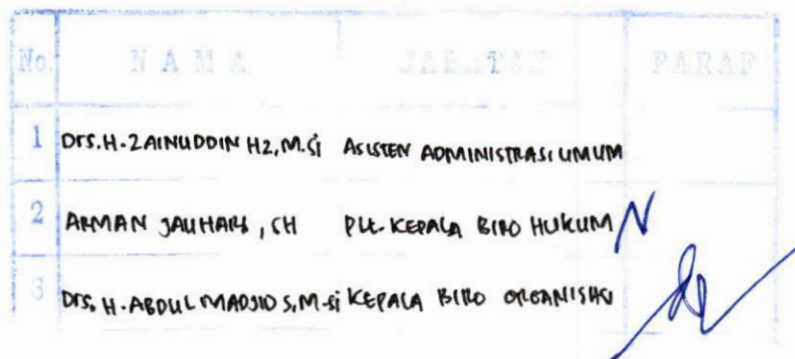 No. NAMA JABATAN PARAF
1 Drs. H. ZAINUDDIN HZ, M.Si ASISTEN ADMINISTRASI UMUM
2 ARMAN JAUHARI, SH PLt. KEPALA BIRO HUKUM
3 Drs. H. ABDUL MADJID S, M.Si KEPALA BIRO ORGANISASI